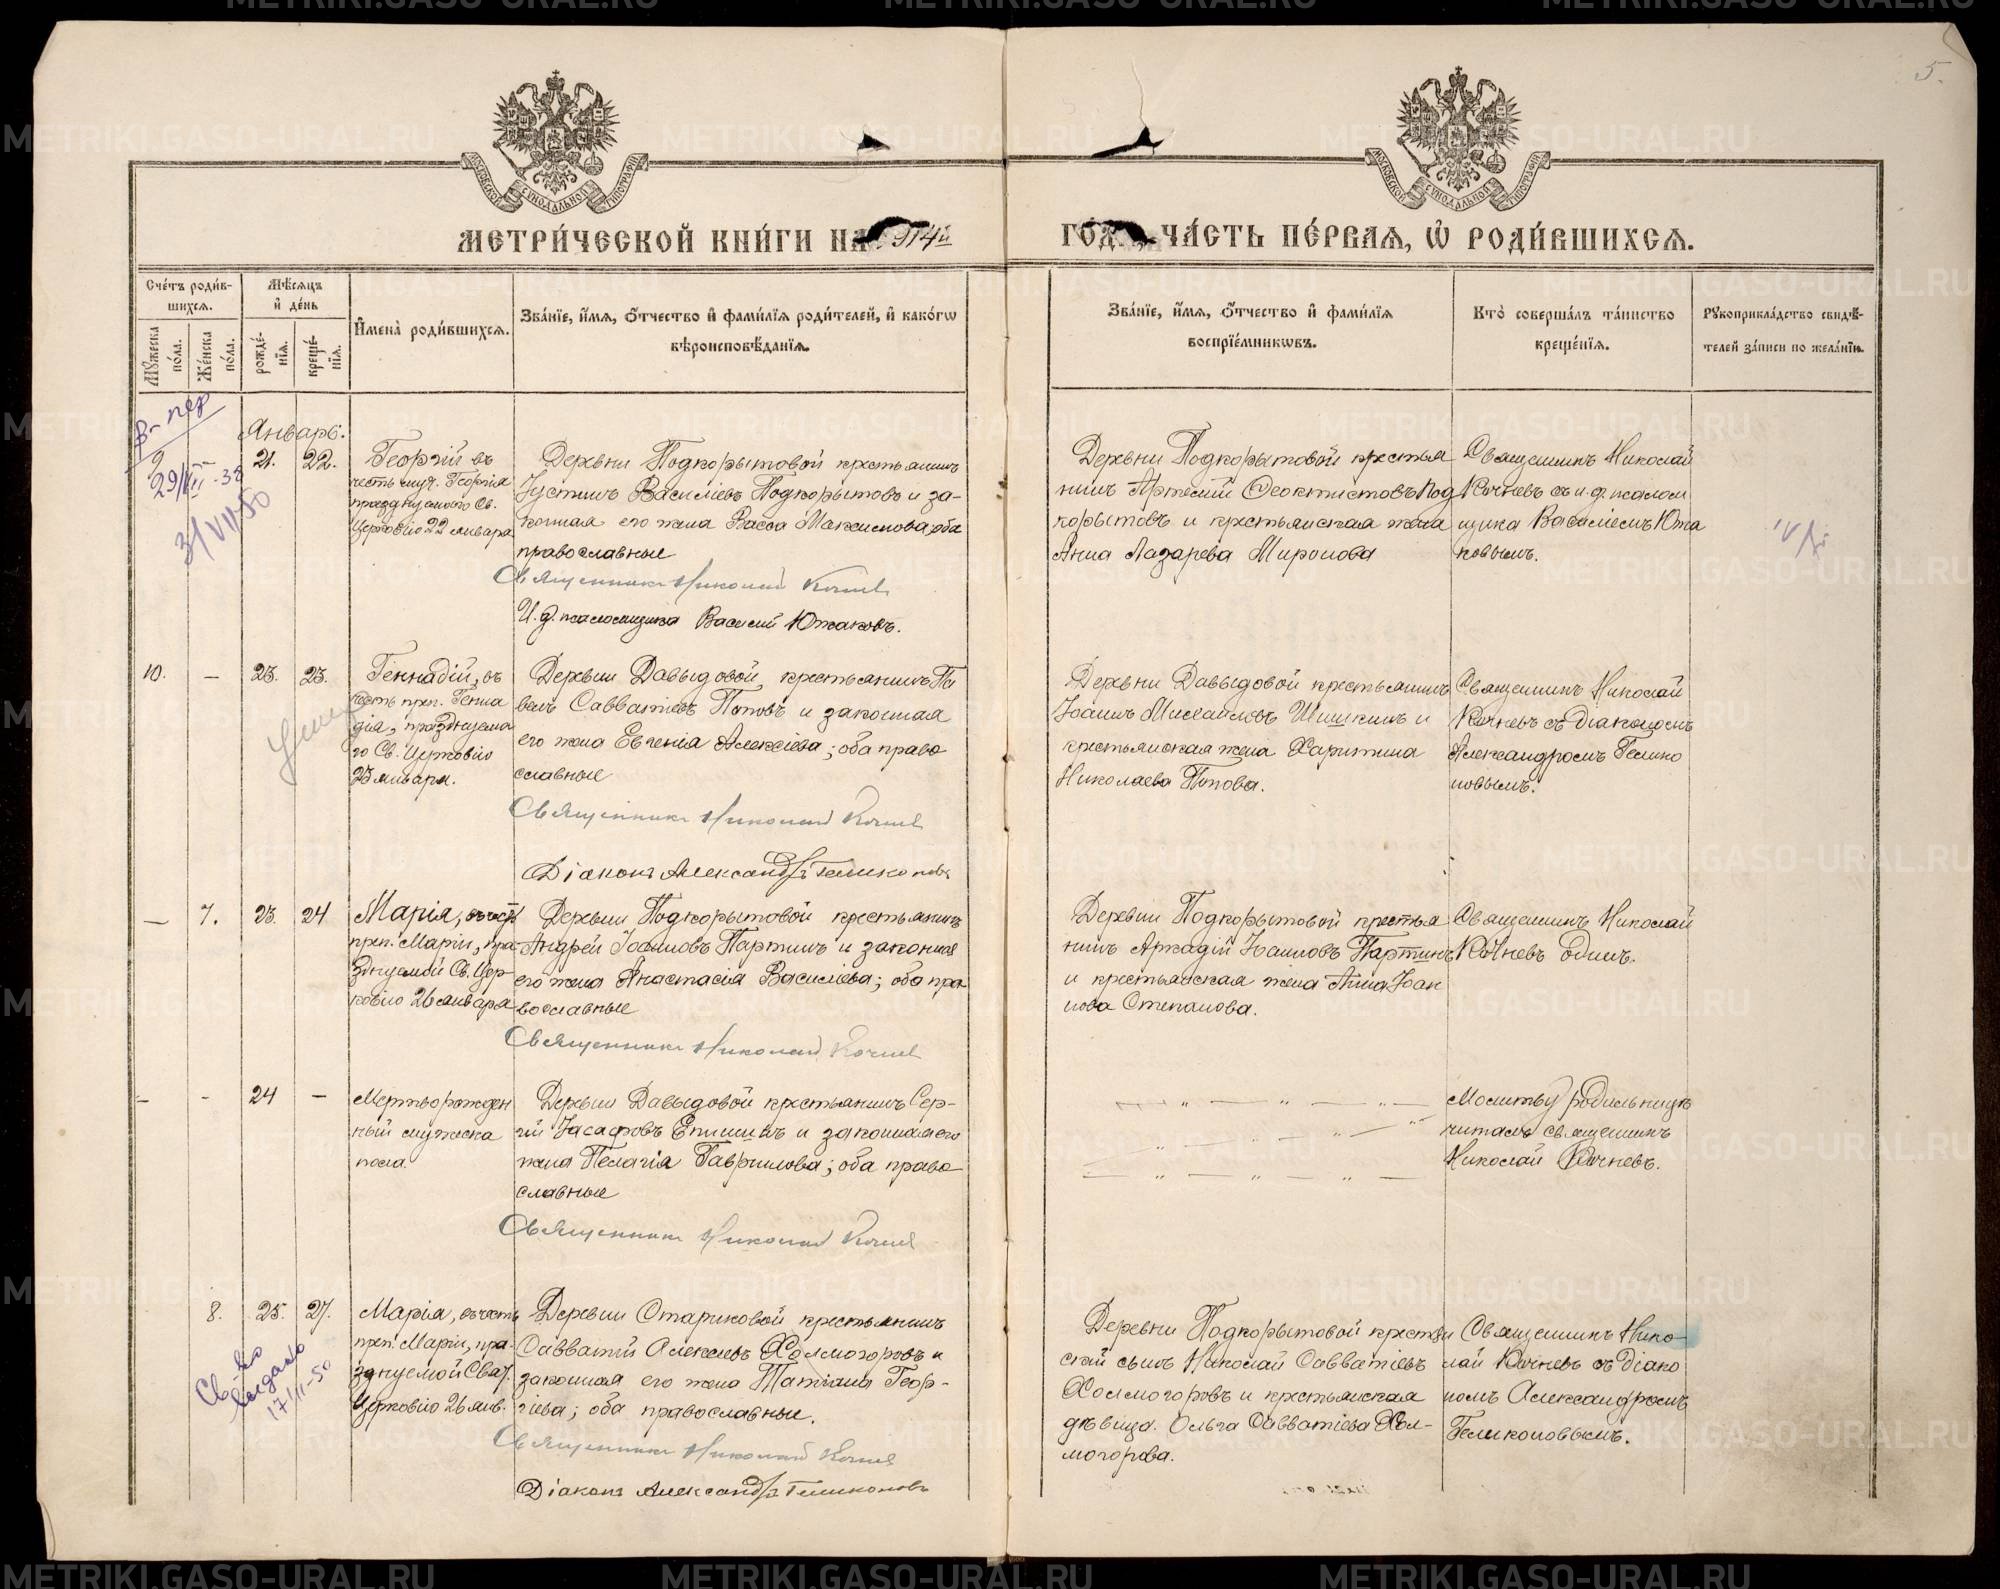 5.
МОСКОВСКОЙ СУНОДАЛЬНОЙ ТИПОГРАФІИ
МОСКОВСКОЙ СУНОДАЛЬНОЙ ТИПОГРАФІИ
МЕТРИ́ЧЕСКОЙ КНИ́ГИ НА 914й
ГО́Д ЧА́СТЬ ПЕ́РВАЯ, Ѽ РОДИ́ВШИХСЯ.
Сче́тъ роди́в-
шихся.
Мѣ́сяцъ
и҆ де́нь
Мꙋ́жеска по́ла.
Же́нска по́ла.
рожде́нїя.
креще́нїя.
И҆мена̀ роди́вшихся.
Зва́нїе, и҆́мя, ѻ҆́тчество и҆ фами́лїя роди́телей, и҆ како́гѡ
вѣроисповѣ́данїя.
Зва́нїе, и҆́мя, ѻ҆́тчество и҆ фами́лїя
воспрїе́мникѡвъ.
Кто̀ соверша́лъ та́инство
креще́нїя.
Рꙋкоприкла́дство свидѣ́-
телей за́писи по жела́нїю.
Январь.
9
–
21.
22.
29/VII-38
3/VII 50
Георгій въ
честь муч. Георгія
празднуемого Св.
Церковію 22 января
Деревни Подкорытовой крестьянинъ
Іустинъ Василіевъ Подкорытовъ и за-
конная его жена Васса Максимова, оба
православные
Священникъ Николай Кочнев
И. д. псаломщика Василій Южаковъ.
Деревни Подкорытовой крестья
нинъ Артемий Феоктистовъ Под
корытовъ и крестьянская жена
Анна Лазарева Миронова
Священникъ Николай
Кочневъ съ и. д. псалом
щика Василіемъ Южа
ковымъ.
10.
–
23.
23.
Геннадій, въ
честь преп. Генна
дія, празднуемо
го Св. Церковію
23 января.
Деревни Давыдовой крестьянинъ Па
велъ Савватіевъ Поповъ и законная
его жена Евгенія Алексіева; оба право
славные
Священникъ Николай Кочнев
Діаконъ Александръ Геликоновъ
Деревни Давыдовой крестьянинъ
Іоаннъ Михаиловъ Шишкинъ и
крестьянская жена Харитина
Николаева Попова.
Священникъ Николай
Кочневъ съ діакономъ
Александромъ Гелико
новымъ.
–
7.
23.
24
Марія, въ честь
преп. Маріи, пра-
зднуемой Св. Цер-
ковію 26 января
Деревни Подкорытовой крестьянинъ
Андрей Іоанновъ Партинъ и законная
его жена Анастасія Василіева; оба пра-
вославные
Священникъ Николай Кочнев
Деревни Подкорытовой крестья
нинъ Аркадій Іоанновъ Партинъ
и крестьянская жена Анна Іоан
нова Степанова.
Священникъ Николай
Кочневъ одинъ.
–
-
24
–
Мертворожден
ный мужеска
пола.
Деревни Давыдовой крестьянинъ Сер-
гій Іасафовъ Епишинъ и законная его
жена Пелагія Гаврилова; оба право
славные
Священникъ Николай Кочнев
Молитву родильницѣ
читалъ священникъ
Николай Кочневъ.
8.
25.
27.
Св-во
выдано
17/II-50
Марія, въ честь
преп. Маріи, пра-
зднуемой Свят.
Церковію 26 янв.
Деревни Стариковой крестьянинъ
Савватій Алексіевъ Холмогоровъ и
законная его жена Татіана Геор-
гіева; оба православные.
Священникъ Николай Кочнев
Діаконъ Александръ Геликоновъ
Деревни Подкорытовой крестьян
скій сынъ Николай Савватіевъ
Холмогоровъ и крестьянская
дѣвица Ольга Савватіева Хол-
могорова.
Священникъ Нико-
лай Кочневъ съ діако
номъ Александромъ
Геликоновымъ.
METRIKI.GASO-URAL.RU